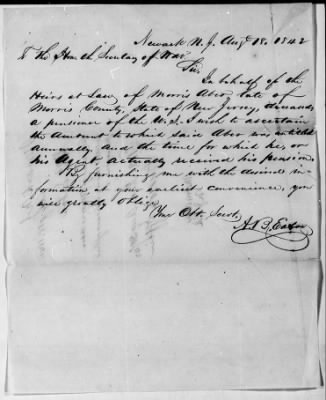 Newark N. J. Augt 18. 1842
To the Hon the Secretary of War
Sir,
In behalf of the
Heirs at Law of Morris Aber, late of
Morris County, State of New Jersey, deceased,
a pensioner of the U.S. I wish to ascertain
the Amount to which said Aber was entitled
annually and the time for which he, or
his Agent actually received his pension.
By furnishing me with the desired in-
formation, at your earliest convenience, you
will greatly oblige
Your Obt. Servt,